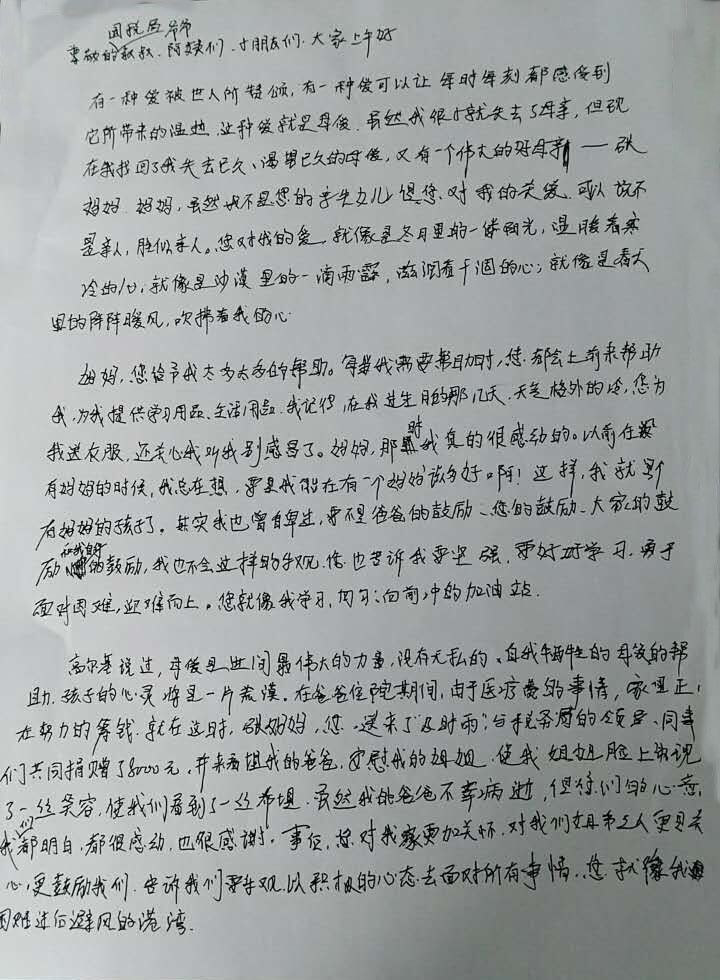 国税局
尊敬的叔叔、阿姨们、小朋友们、大家上午好
有一种爱被世人所赞颂,有一种爱可以让每时每刻都感受到
它所带来的温暖,这种爱就是母爱。虽然我很小就失去了母亲,但现
在我找回了我失去已久、渴望已久的母爱,又有一个伟大的好母亲——张
妈妈。妈妈,虽然我不是您的亲生女儿但您对我的关爱,可以说不
是亲人,胜似亲人。您对我的爱,就像是冬日里的一缕阳光,温暖着寒
冷的心;就像是沙漠里的一滴雨露,滋润着干涸的心;就像是春天
里的阵阵暖风,吹拂着我的心
妈妈,您给予我太多太多的帮助。每当我需要帮助时,您都会上前来帮助
我,为我提供学习用品、生活用品。我记得,在我过生日的那几天,天气格外的冷,您为
我送衣服,还关心我叫我别感冒了。妈妈,那时我真的很感动的。以前在没
有妈妈的时候,我总在想,要是我能在有一个妈妈该多好啊!这样,我就是个
有妈妈的孩子了。其实我也曾自卑过,要不是爸爸的鼓励、您的鼓励、大家的鼓
励 的鼓励,我也不会这样的乐观。您也告诉我要坚强,要好好学习,勇于
面对困难,迎难而上。您就像我学习、向前冲的加油站。
高尔基说过,母爱是世间最伟大的力量,没有无私的、自我牺牲的母爱的帮
助,孩子的心灵将是一片荒漠。在爸爸住院期间,由于医疗费的事情,家里正
在努力的筹钱。就在这时,张妈妈,您送来了及时雨;台村税务所的领导、同事
们共同捐赠了8000元,并来看望我的爸爸,安慰我的姐姐,使我姐姐脸上浮现
了一丝笑容,使我们看到了一丝希望。虽然我的爸爸不幸病逝,但你们的心意,
我们都明白,都很感动,也很感谢。事后,您对我家更加关怀,对我们姐弟三人更是关
心,更鼓励我们,告诉我们要乐观,以积极的心态去面对所有事情。您就像我
困难过后避风的港湾。